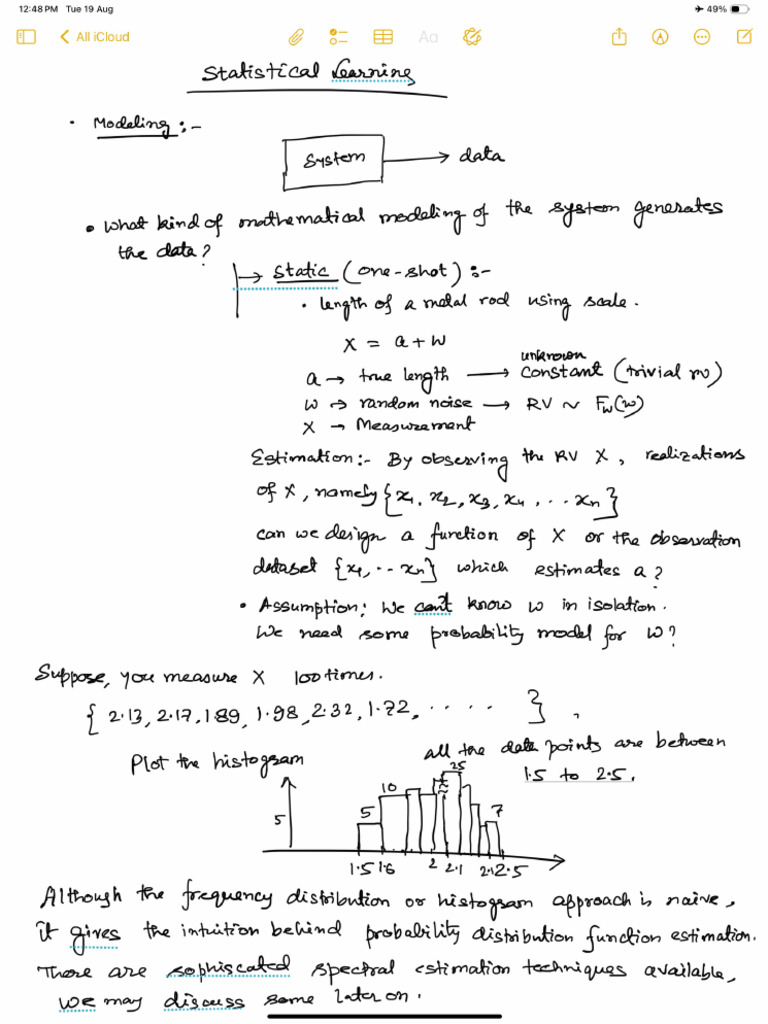 12:48 PM Tue 19 Aug
49%
All iCloud
Aa
Statistical Learning
• Modeling :-
System → data
• What kind of mathematical modeling of the system generates
the data?
→ Static (one-shot) :-
• length of a metal rod using scale.
X = a + W
unknown
a → true length → constant (trivial rv)
W → random noise → RV ~ F_W(w)
X → Measurement
Estimation:- By observing the RV X, realizations
of X, namely {x1, x2, x3, x4, ... xn}
can we design a function of X or the observation
dataset {x1, .. xn} which estimates a?
• Assumption: We can't know W in isolation.
We need some probability model for W?
Suppose, you measure X 100 times.
{ 2.13, 2.17, 1.89, 1.98, 2.32, 1.72, ..... },
Plot the histogram
all the data points are between
1.5 to 2.5.
25
10
5
5
7
1.5 1.6 2 2.1 2.5
Although the frequency distribution or histogram approach is naive,
it gives the intuition behind probability distribution function estimation.
There are sophiscated spectral estimation techniques available,
we may discuss some later on.